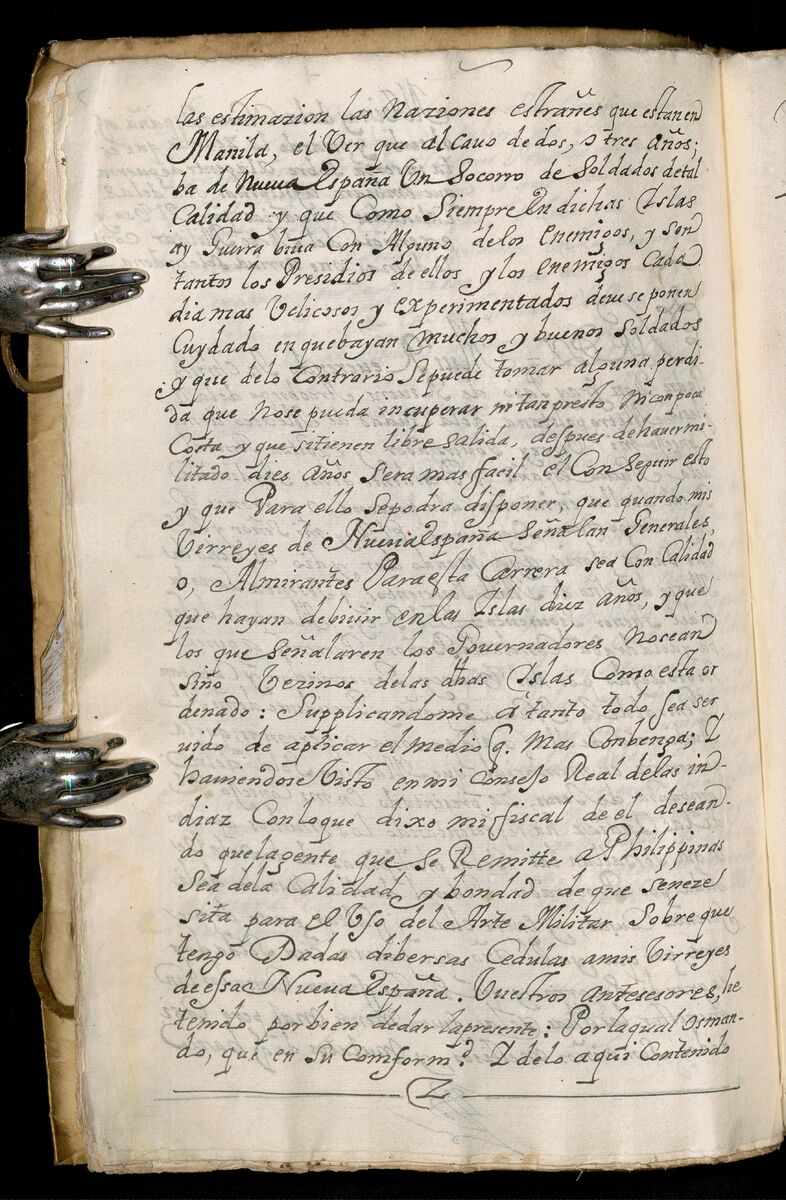 las estimazion las naziones estrañes que estan en
Manila, el Ver que al cauo de dos, o tres años;
ba de Nueua España Un Socorro de Soldados de tal
Calidad y que Como Siempre En dichas Islas
ay Guerra biua Con Alguno de los Enemigos, y son
tantos los Presidios de ellos y los Enemigos Cada
dia mas Velicosos y experimentados deue se poner
Cuydado en que bayan muchos y buenos Soldados
y que delo Contrario Sepuede tomar alguna perdi-
da que nose pueda incuperar ni tan presto Ni con poca
Costa y que sitienen libre Salida, despues de hauer mi-
litado dies años sera mas facil el Con seguir esto
y que Para ello sepodra disponer, que quando mis
Virreyes de Nueua España Señalan Generales,
o, Almirantes Para esta Carrera sea Con Calidad
que hayan debiuir en las Islas diez años, y que
los que señalaren los Gouernadores No sean
sino Vezinos delas dhas Islas Como esta or
denado: Supplicandome à tanto todo sea ser
uido de aplicar el medio q. Mas Conbenga; Y
hauiendose Visto en mi Consejo Real delas in-
diaz Con loque dixo mi fiscal de el desean-
do quela gente que se Remitte a Philippinas
Sea dela Calidad y bondad de que seneze
sita para el Vso del Arte Militar Sobre que
tengo Dadas dibersas Cedulas a mis Virreyes
de essa Nueua España. Vuestros antesesores, he
tenido por bien de dar la presente: Por la qual Osman-
do, que en su Comform.ᵈ Y delo aqui Contenido